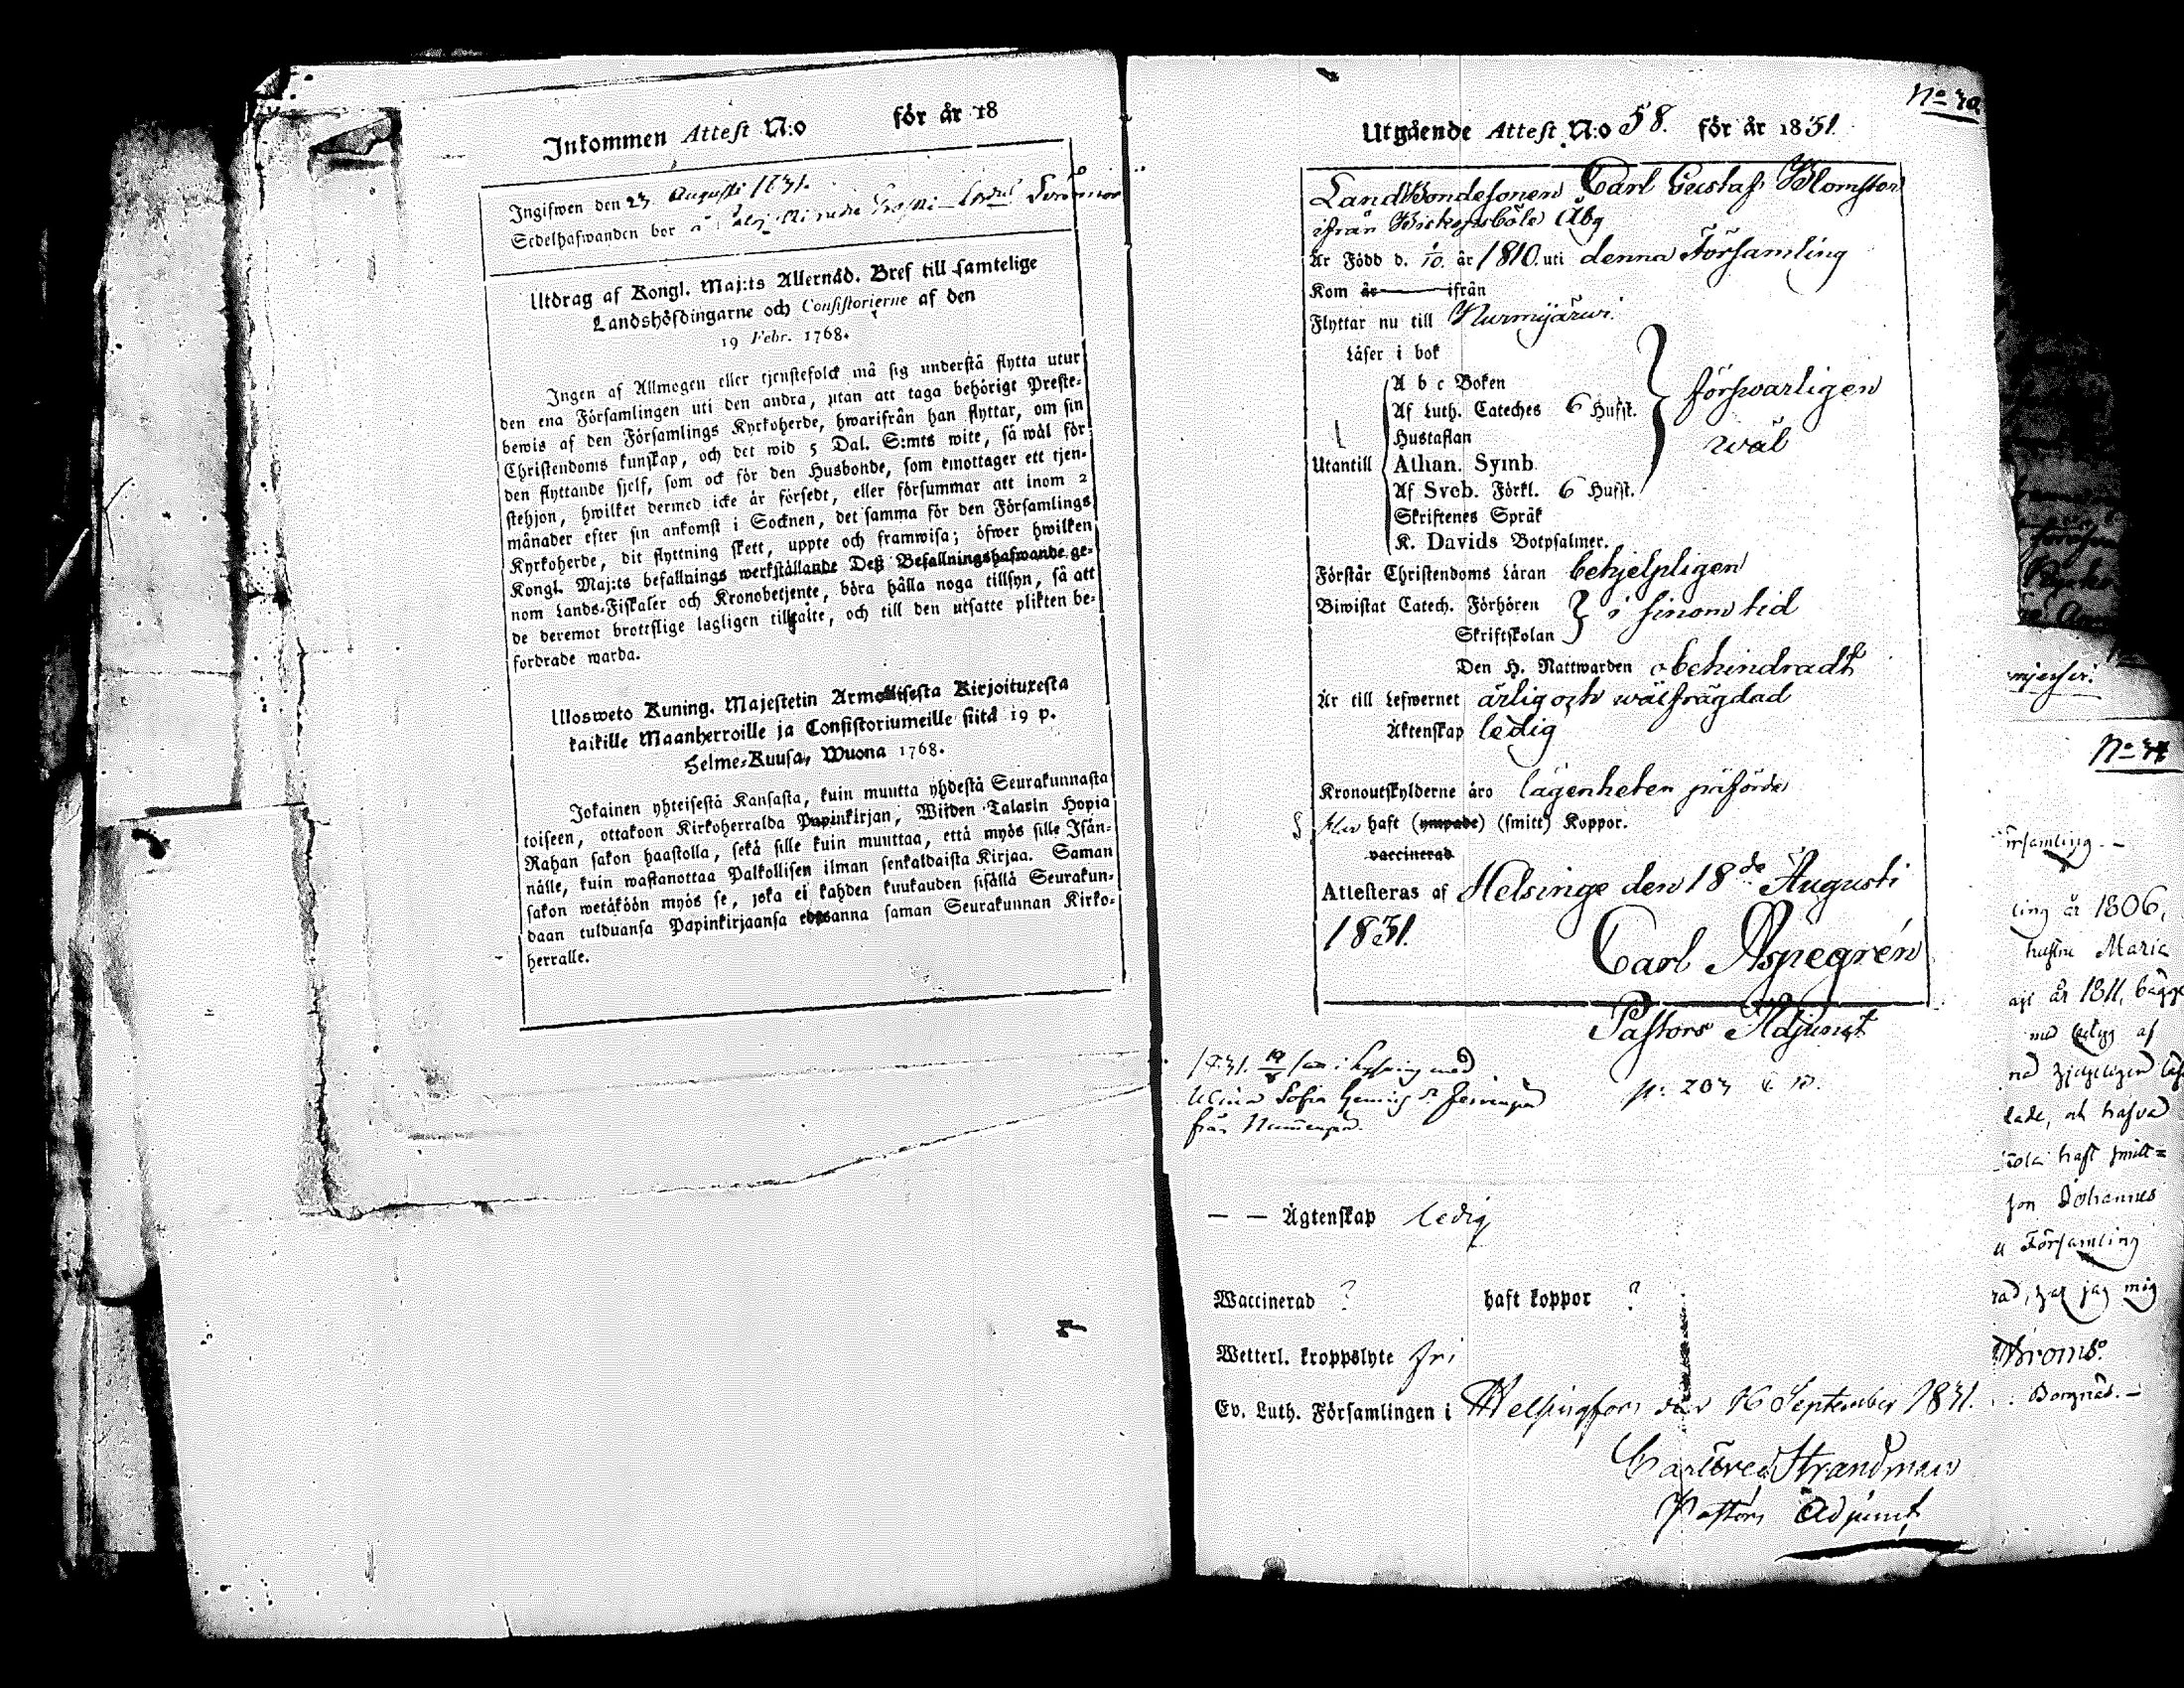 Inkommen Attest N:o för år 18
Ingifwen den 23 Augusti 1831.
Sedelhafwanden bor å
Utdrag af Kongl. Maj:ts Allernåd. Bref till samtelige
Landshöfdingarne och Consistorierne af den
19 Febr. 1768.
Ingen af Allmogen eller tjenstefolck må sig understå flytta utur
den ena Församlingen uti den andra, utan att taga behörigt Preste-
bewis af den Församlings Kyrkoherde, hwarifrån han flyttar, om sin
Christendoms kunskap, och det wid 5 Dal. S:mts wite, så wål för
den flyttande sjelf, som ock för den Husbonde, som emottager ett tjen-
stehjon, hwilket dermed icke är försedt, eller försummar att inom 2
månader efter sin ankomst i Socknen, det samma för den Församlings
Kyrkoherde, dit flyttning skett, uppte och framwisa; öfwer hwilken
Kongl. Maj:ts befallnings werkställande Deß Befallningshafwande ge-
nom Lands-Fiskaler och Kronobetjente, böra hålla noga tillsyn, så att
de deremot brottslige lagligen tilltalte, och till den utsatte plikten be-
fordrade warda.
Ulosweto Kuning. Majestetin Armollisesta Kirjoituxesta
kaikille Maanherroille ja Consistoriumeille siitä 19 p.
Helme-Kuusa, Wuona 1768.
Jokainen yhteisestä Kansasta, kuin muutta yhdestä Seurakunnasta
toiseen, ottakoon Kirkoherralda Papinkirjan, Wijden Talarin Hopia
Rahan sakon haastolla, sekå sille kuin muuttaa, että myös sille Isån-
nälle, kuin wastanottaa Palkollisen ilman senkaldaista Kirjaa. Saman
sakon wetäköön myös se, joka ei kahden kuukauden sisällä Seurakun-
daan tulduansa Papinkirjaansa edesanna saman Seurakunnan Kirko-
herralle.
Utgående Attest N:o 58. för år 1831.
LandBondesonen Carl Gustaf Blomster
ifrån Biskopsböle Åbg
År Född d. 10. år 1810. uti denna Församling
Kom år ifrån
Flyttar nu till Nurmijärwi.
Läser i bok
A b c Boken
Af Luth. Cateches 6 Hufst. försvarligen
Hustaflan wäl
Utantill Athan. Symb.
Af Sveb. Förkl. 6 Hufst.
Skriftenes Språk
K. Davids Botpsalmer.
Förstår Christendoms Läran behjelpligen
Biwistat Catech. Förhören i sinom tid
Skriftskolan
Den H. Nattwarden obehindradt
År till Lefwernet ärlig och wälfrägdad
Äktenskap ledig
Kronoutskylderne åro lägenheten påförde
haft (ympade) (smitt) Koppor.
vaccinerad
Attesteras af Helsinge den 18de Augusti
1831.
Carl Aspegrén
Pastors Adjunct
från
p: 203
— — Ägtenskap ledig
Waccinerad ? haft koppor ?
Wetterl. kroppslyte fri
Ev. Luth. Församlingen i Helsingfors den 16 September 1831.
Strandman
Pastors Adjunct
församling. –
ling år 1806,
hustru Maria
år 1811, bägge
haft smitt=
son Johannes
Församling
jag mig
Borgnäs. –